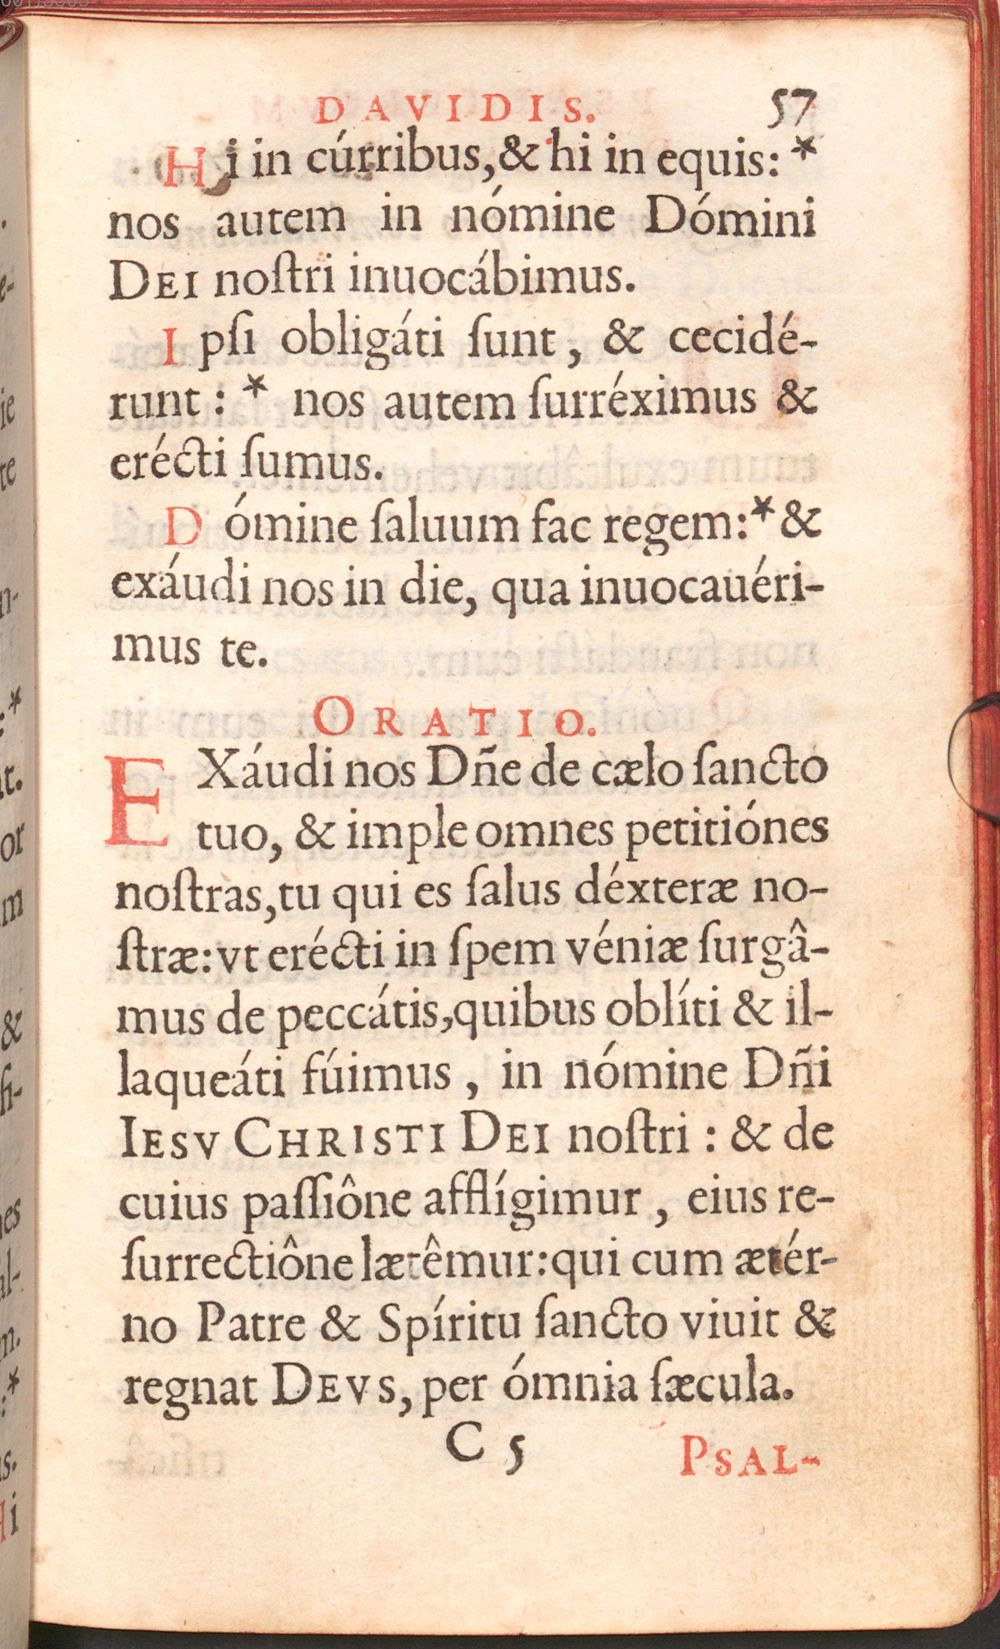 DAVIDIS. 57
Hi in cúrribus,& hi in equis: *
nos autem in nómine Dómini
DEI noſtri inuocábimus.
Ipſi obligáti ſunt, & cecidé-
runt: * nos autem ſurréximus &
erécti ſumus.
Dómine ſaluum fac regem:* &
exáudi nos in die, qua inuocauéri-
mus te.
ORATIO.
EXáudi nos Dñe de cælo ſancto
tuo, & imple omnes petitiónes
noſtras,tu qui es ſalus déxteræ no-
ſtræ: vt erécti in ſpem véniæ ſurgâ-
mus de peccátis,quibus oblíti & il-
laqueáti fúimus, in nómine Dñi
IESV CHRISTI DEI noſtri: & de
cuius paſſiône afflígimur, eius re-
ſurrectiône lætêmur: qui cum ætér-
no Patre & Spíritu ſancto viuit &
regnat DEVS, per ómnia ſæcula.
C 5 PSAL-